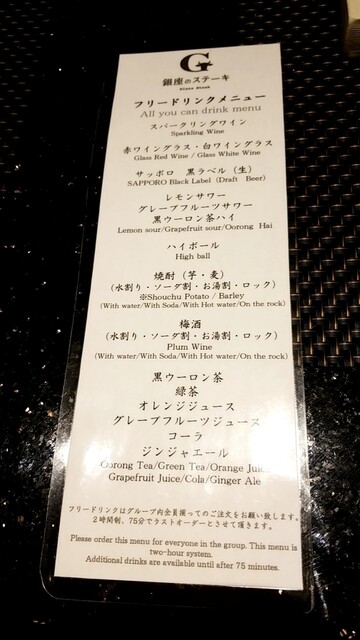 G
銀座のステーキ
Ginza Steak
フリードリンクメニュー
All you can drink menu
スパークリングワイン
Sparkling Wine
赤ワイングラス・白ワイングラス
Glass Red Wine / Glass White Wine
サッポロ 黒ラベル（生）
SAPPORO Black Label（Draft Beer）
レモンサワー
グレープフルーツサワー
黒ウーロン茶ハイ
Lemon sour/Grapefruit sour/Oorong Hai
ハイボール
High ball
焼酎（芋・麦）
（水割り・ソーダ割・お湯割・ロック）
※Shouchu Potato / Barley
(With water/With Soda/With Hot water/On the rock)
梅酒
（水割り・ソーダ割・お湯割・ロック）
Plum Wine
(With water/With Soda/With Hot water/On the rock)
黒ウーロン茶
緑茶
オレンジジュース
グレープフルーツジュース
コーラ
ジンジャエール
Oorong Tea/Green Tea/Orange Juice
Grapefruit Juice/Cola/Ginger Ale
フリードリンクはグループ内全員揃ってのご注文をお願い致します。
２時間制、75分でラストオーダーとさせて頂きます。
Please order this menu for everyone in the group. This menu is
two-hour system.
Additional drinks are available until after 75 minutes.